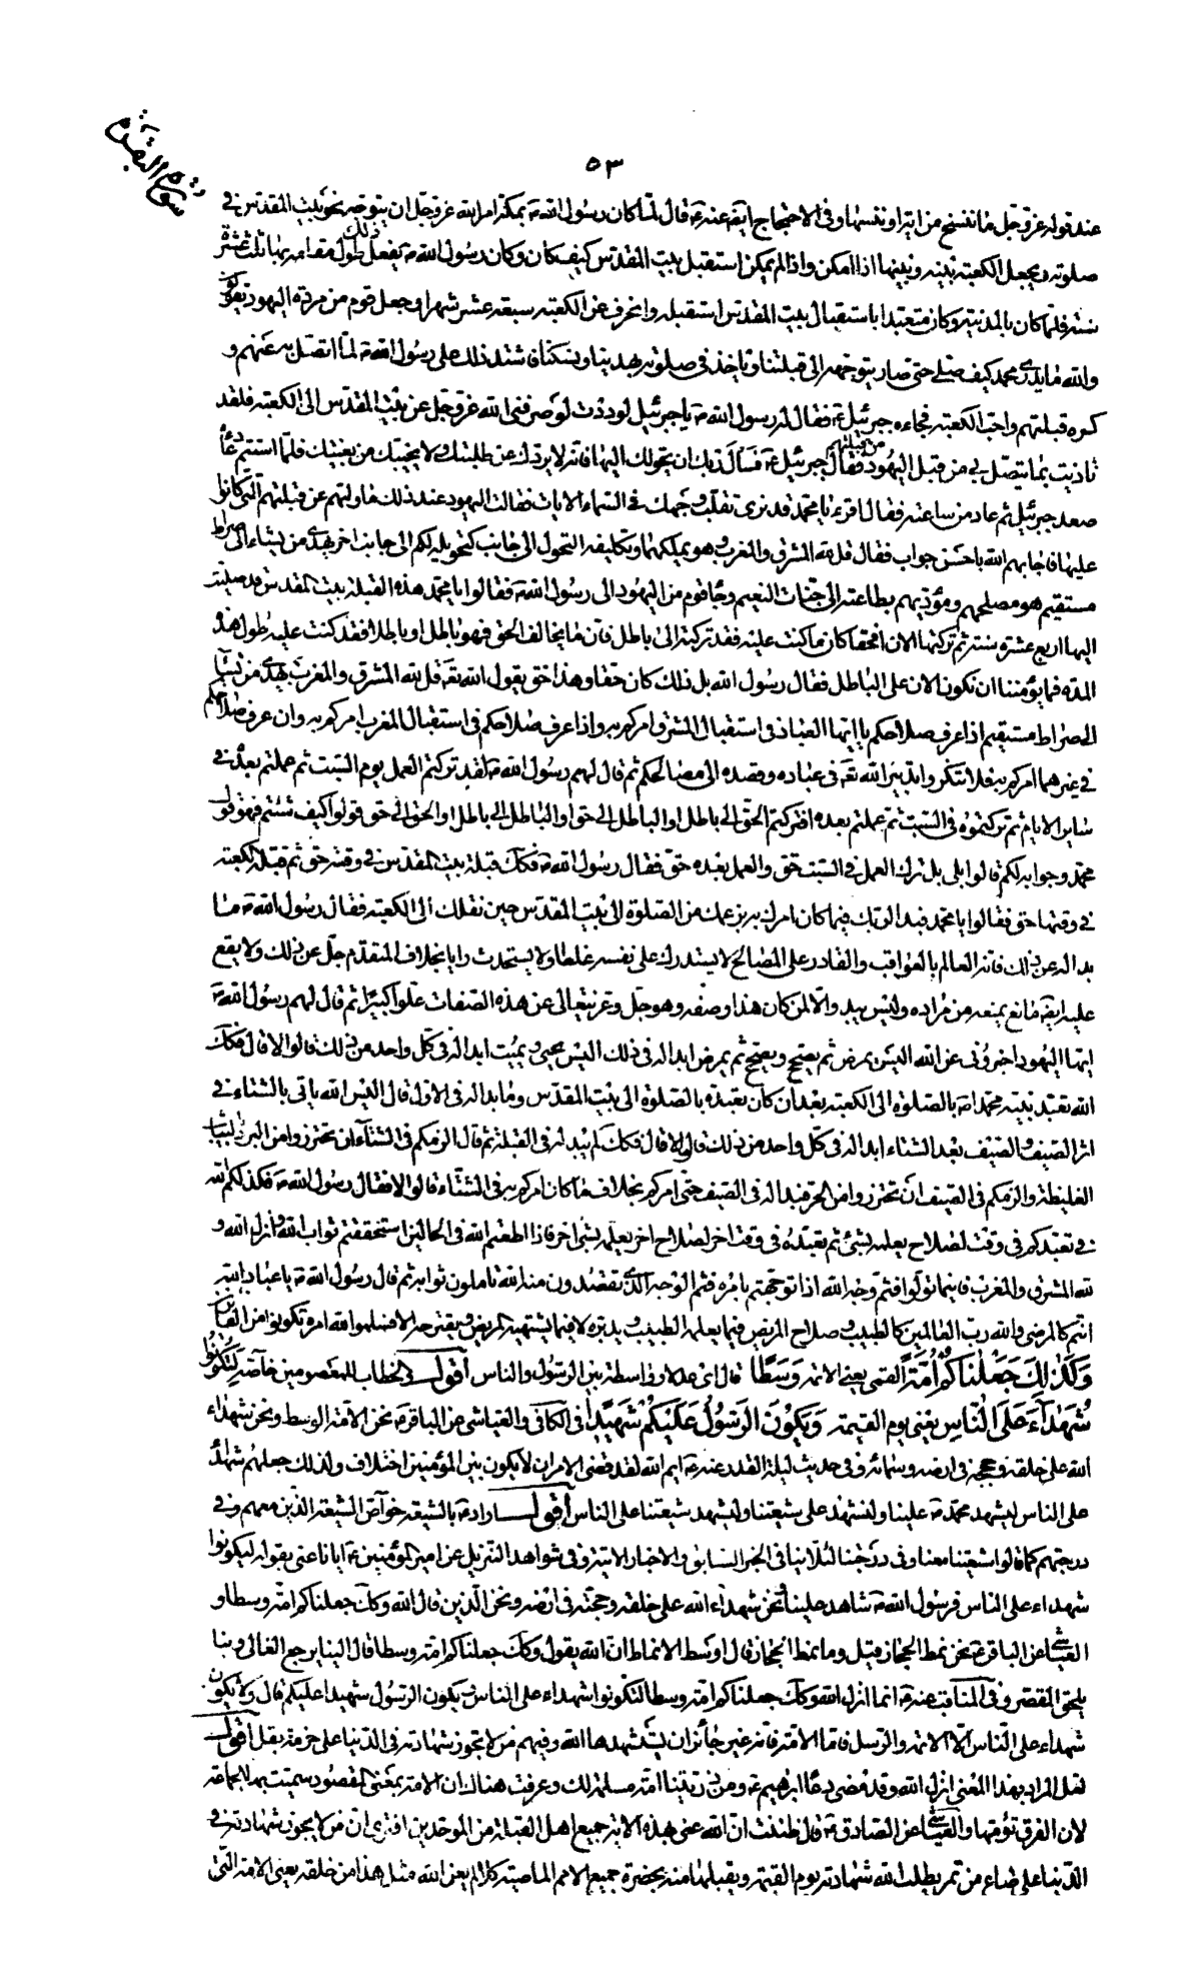 سورة البقرة
٥٣
عند قوله عزوجل ما ننسخ من اية او ننسها وفى الاحتجاج ايضا عنه ع قال لما كان رسول الله ص بمكة امره الله عزوجل ان يتوجه نحو بيت المقدس فى
صلوته ويجعل الكعبة بينه وبينها اذا امكن واذا لم يمكن استقبل بيت المقدس كيف كان وكان رسول الله ص يفعل ذلك طول مقامه بها ثلث عشرة
سنة فلما كان بالمدينة وكان متعبدا باستقبال بيت المقدس استقبله وانحرف عن الكعبة سبعة عشر شهرا وجعل قوم من مردة اليهود يقولون
والله ما يدرى محمد كيف صلى حتى صار يتوجه الى قبلتنا وياخذ فى صلوته بهدينا ونسكنا فاشتد ذلك على رسول الله ص لما اتصل به عنهم و
كره قبلتهم واحب الكعبة فجاءه جبرئيل ع فقال له رسول الله ص يا جبرئيل لوددت لو صرفنى الله عزوجل عن بيت المقدس الى الكعبة فلقد
تاذيت بما يتصل بى من قبل اليهود من قبلتهم فقال جبرئيل ع فسأل ربك ان يحولك اليها فانه لا يردك عن طلبتك ولا يخيبك من بغيتك فلما استتم دعاءه
صعد جبرئيل ثم عاد من ساعته فقال اقرء يا محمد قد نرى تقلب وجهك فى السماء الايات فقالت اليهود عند ذلك ما وليهم عن قبلتهم التى كانوا
عليها فاجابهم الله باحسن جواب فقال قل لله المشرق والمغرب وهو يملكهما وتكليفه التحول الى جانب كتحويله لكم الى جانب اخر يهدى من يشاء الى صراط
مستقيم هو مصلحهم ومؤديهم بطاعته الى جنات النعيم وجاء قوم من اليهود الى رسول الله ص فقالوا يا محمد هذه القبلة بيت المقدس قد صليت
اليها اربع عشرة سنة ثم تركتها الان افحقا كان ما كنت عليه فقد تركته الى باطل فان ما يخالف الحق فهو باطل او باطلا فقد كنت عليه طول هذه
المدة فما يؤمننا ان تكون الان على الباطل فقال رسول الله بل ذلك كان حقا وهذا حق يقول الله تعه قل لله المشرق والمغرب يهدى من يشاء
الى صراط مستقيم اذا عرف صلاحكم يا ايها العباد فى استقبال المشرق امركم به واذا عرف صلاحكم فى استقبال المغرب امركم به وان عرف صلاحكم
فى غيرهما امركم به فلا تنكروا تدبير الله تعه فى عباده وقصده الى مصالحكم ثم قال لهم رسول الله ص لقد تركتم العمل يوم السبت ثم عملتم بعده فى
ساير الايام ثم تركتموه فى السبت ثم عملتم بعده افتركتم الحق الى باطل او الباطل الى حق او الباطل الى باطل او الحق الى حق قولوا كيف شئتم فهو قول
محمد وجوابه لكم قالوا بلى بل ترك العمل فى السبت حق والعمل بعده حق فقال رسول الله ص فكك قبلة بيت المقدس فى وقته حق ثم قبلة الكعبة
فى وقتها حق فقالوا يا محمد فبدا لربك فيما كان امرك به بزعمك من الصلوة الى بيت المقدس حين نقلك الى الكعبة فقال رسول الله ص ما
بدا له عن ذلك فانه العالم بالعواقب والقادر على المصالح لا يستدرك على نفسه غلطا ولا يستحدث رايا بخلاف المتقدم جل عن ذلك ولا يقع
عليه ايضا مانع يمنعه من مراده وليس يبدو الا لمن كان هذا وصفه وهو جل وعز يتعالى عن هذه الصفات علوا كبيرا ثم قال لهم رسول الله ص
ايها اليهود اخبرونى عن الله اليس يمرض ثم يصح ويصح ثم يمرض ابدا له فى ذلك اليس يحيى ويميت ابدا له فى كل واحد من ذلك قالوا لا قال فكك
الله تعبد نبيه محمدا ص بالصلوة الى الكعبة بعد ان كان تعبده بالصلوة الى بيت المقدس وما بدا له فى الاول قال اليس الله ياتى بالشتاء فى
اثر الصيف والصيف بعد الشتاء ابدا له فى كل واحد من ذلك قالوا لا قال فكك لم يبد له فى القبلة ثم قال الزمكم فى الشتاء ان تحترزوا من البرد بالثياب
الغليظة والزمكم فى الصيف ان تحترزوا من الحر فبدا له فى الصيف حتى امركم بخلاف ما كان امركم به فى الشتاء قالوا لا فقال رسول الله ص فكذلكم الله
فى تعبدكم فى وقت لصلاح يعلمه بشئ ثم تعبده فى وقت اخر لصلاح اخر يعلمه بشئ اخر فاذا اطعتم الله فى الحالين استحققتم ثواب الله وانزل الله و
لله المشرق والمغرب فاينما تولوا فثم وجه الله اذا توجهتم بامره فثم الوجه الذى تقصدون منه الله تاملون ثوابه ثم قال رسول الله ص يا عباد الله
انتم كالمرضى والله رب العالمين كالطبيب وصلاح المريض فيما يعلمه الطبيب ويدبره لا فيما يشتهيه المريض ويقترحه الا فسلموا لله امره تكونوا من الفائزين
وَكَذٰلِكَ جَعَلْنَاكُمْ اُمَّةً القمى يعنى الائمة وَسَطًا قال اى عدلا وواسطة بين الرسول والناس اقول فالخطاب للمعصومين خاصة لِتَكُونُوا
شُهَدَآءَ عَلَى النَّاسِ يعنى يوم القيمة وَيَكُونَ الرَّسُولُ عَلَيْكُمْ شَهِيدًا فى الكافى والعياشى عن الباقر ع نحن الامة الوسط ونحن شهداء
الله على خلقه وحججه فى ارضه وسمائه وفى حديث ليلة القدر عنه ع ايم الله لقد قضى الامر ان لا يكون بين المؤمنين اختلاف ولذلك جعلهم شهداء
على الناس ليشهد محمد ص علينا ولنشهد على شيعتنا وليشهد شيعتنا على الناس اقول اراد ع بالشيعة خواص الشيعة الذين معهم وفى
درجتهم كما قالوا شيعتنا معنا وفى درجتنا لئلا ينافى الخبر السابق والاخبار الاتية وفى شواهد التنزيل عن امير المؤمنين ع ايانا عنى بقوله ليكونوا
شهداء على الناس فرسول الله ص شاهد علينا ونحن شهداء الله على خلقه وحجته فى ارضه ونحن الذين قال الله وكك جعلناكم امة وسطا و
العياشى عن الباقر ع نحن نمط الحجاز قيل وما نمط الحجاز قال اوسط الانماط ان الله يقول وكك جعلناكم امة وسطا قال الينا يرجع الغالى وبنا
يلحق المقصر وفى المناقب عنه ع انما انزل الله وكك جعلناكم امة وسطا لتكونوا شهداء على الناس ويكون الرسول شهيدا عليكم قال ولا يكون
شهداء على الناس الا الائمة والرسل فاما الامة فانه غير جائز ان يستشهدها الله وفيهم من لا تجوز شهادته فى الدنيا على حزمة بقل اقول
لعل المراد بهذا المعنى انزل الله وقد مضى دعاء ابرهيم ع ومن ذريتنا امة مسلمة لك وعرفت هناك ان الامة بمعنى المقصود سميت بها الجماعة
لان الفرق تؤمها والعياشى عن الصادق ع قال ظننت ان الله عنى بهذه الاية جميع اهل القبلة من الموحدين افترى ان من لا يجوز شهادته فى
الدنيا على صاع من تمر يطلب الله شهادته يوم القيمة ويقبلها منه بحضرة جميع الامم الماضية كلا لم يعن الله مثل هذا من خلقه يعنى الامة التى